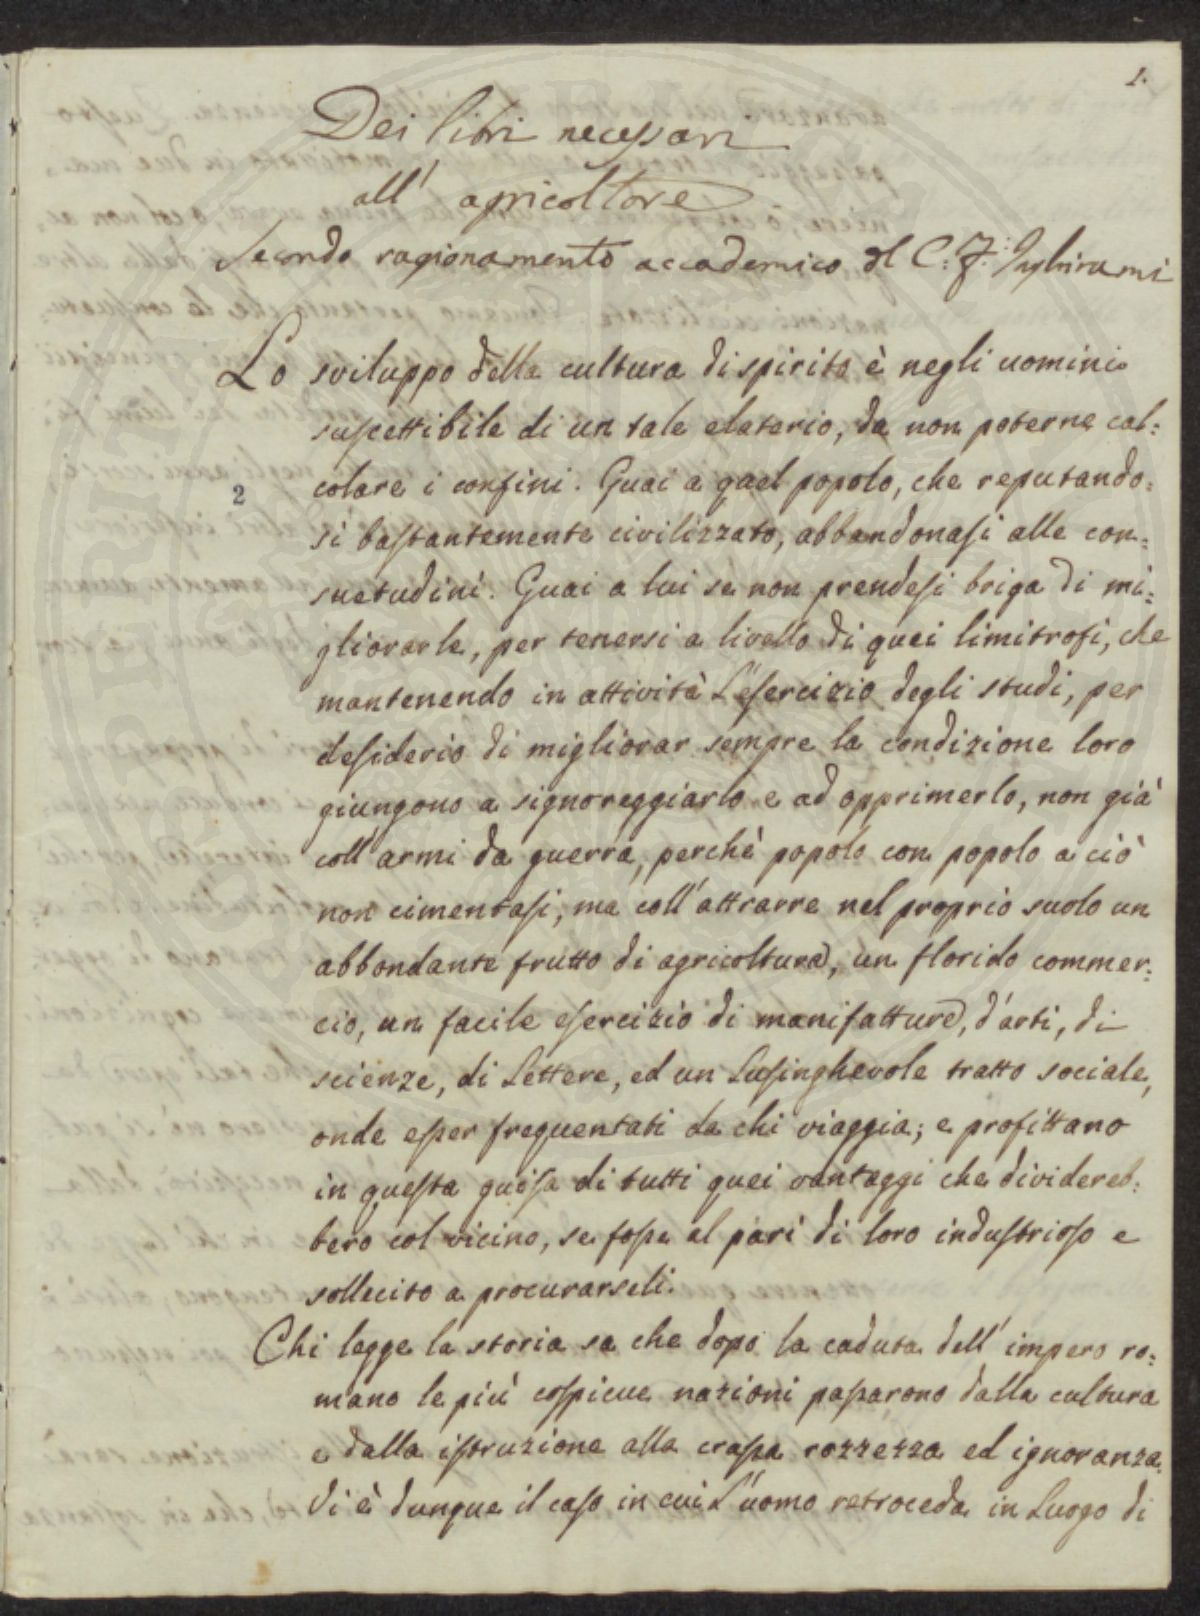 1.
Dei libri necessari
all' agricoltore
Secondo ragionamento accademico del C. F. Inghirami
Lo sviluppo della cultura di spirito è negli uomini
suscettibile di un tale elaterio, da non poterne cal:
colare i confini. Guai a quel popolo, che reputando:
2
si bastantemente civilizzato, abbandonasi alle con:
suetudini. Guai a lui se non prendesi briga di mi:
gliorarle, per tenersi a livello di quei limitrofi, che
mantenendo in attività l'esercizio degli studi, per
desiderio di migliorar sempre la condizione loro
giungono a signoreggiarlo e ad opprimerlo, non già
coll'armi da guerra, perchè popolo con popolo a ciò
non cimentasi, ma coll'attrarre nel proprio suolo un
abbondante frutto di agricoltura, un florido commer:
cio, un facile esercizio di manifatture, d'arti, di
scienze, di Lettere, ed un Lusinghevole tratto sociale,
onde esser frequentati da chi viaggia; e profittano
in questa guisa di tutti quei vantaggi che divideret:
bero col vicino, se fosse al pari di loro industrioso e
sollecito a procurarseli.
Chi legge la storia sa che dopo la caduta dell'impero ro:
mano le più cospicue nazioni passarono dalla cultura
e dalla istruzione alla crassa rozzezza ed ignoranza.
Vi è dunque il caso in cui L'uomo retroceda in Luogo di